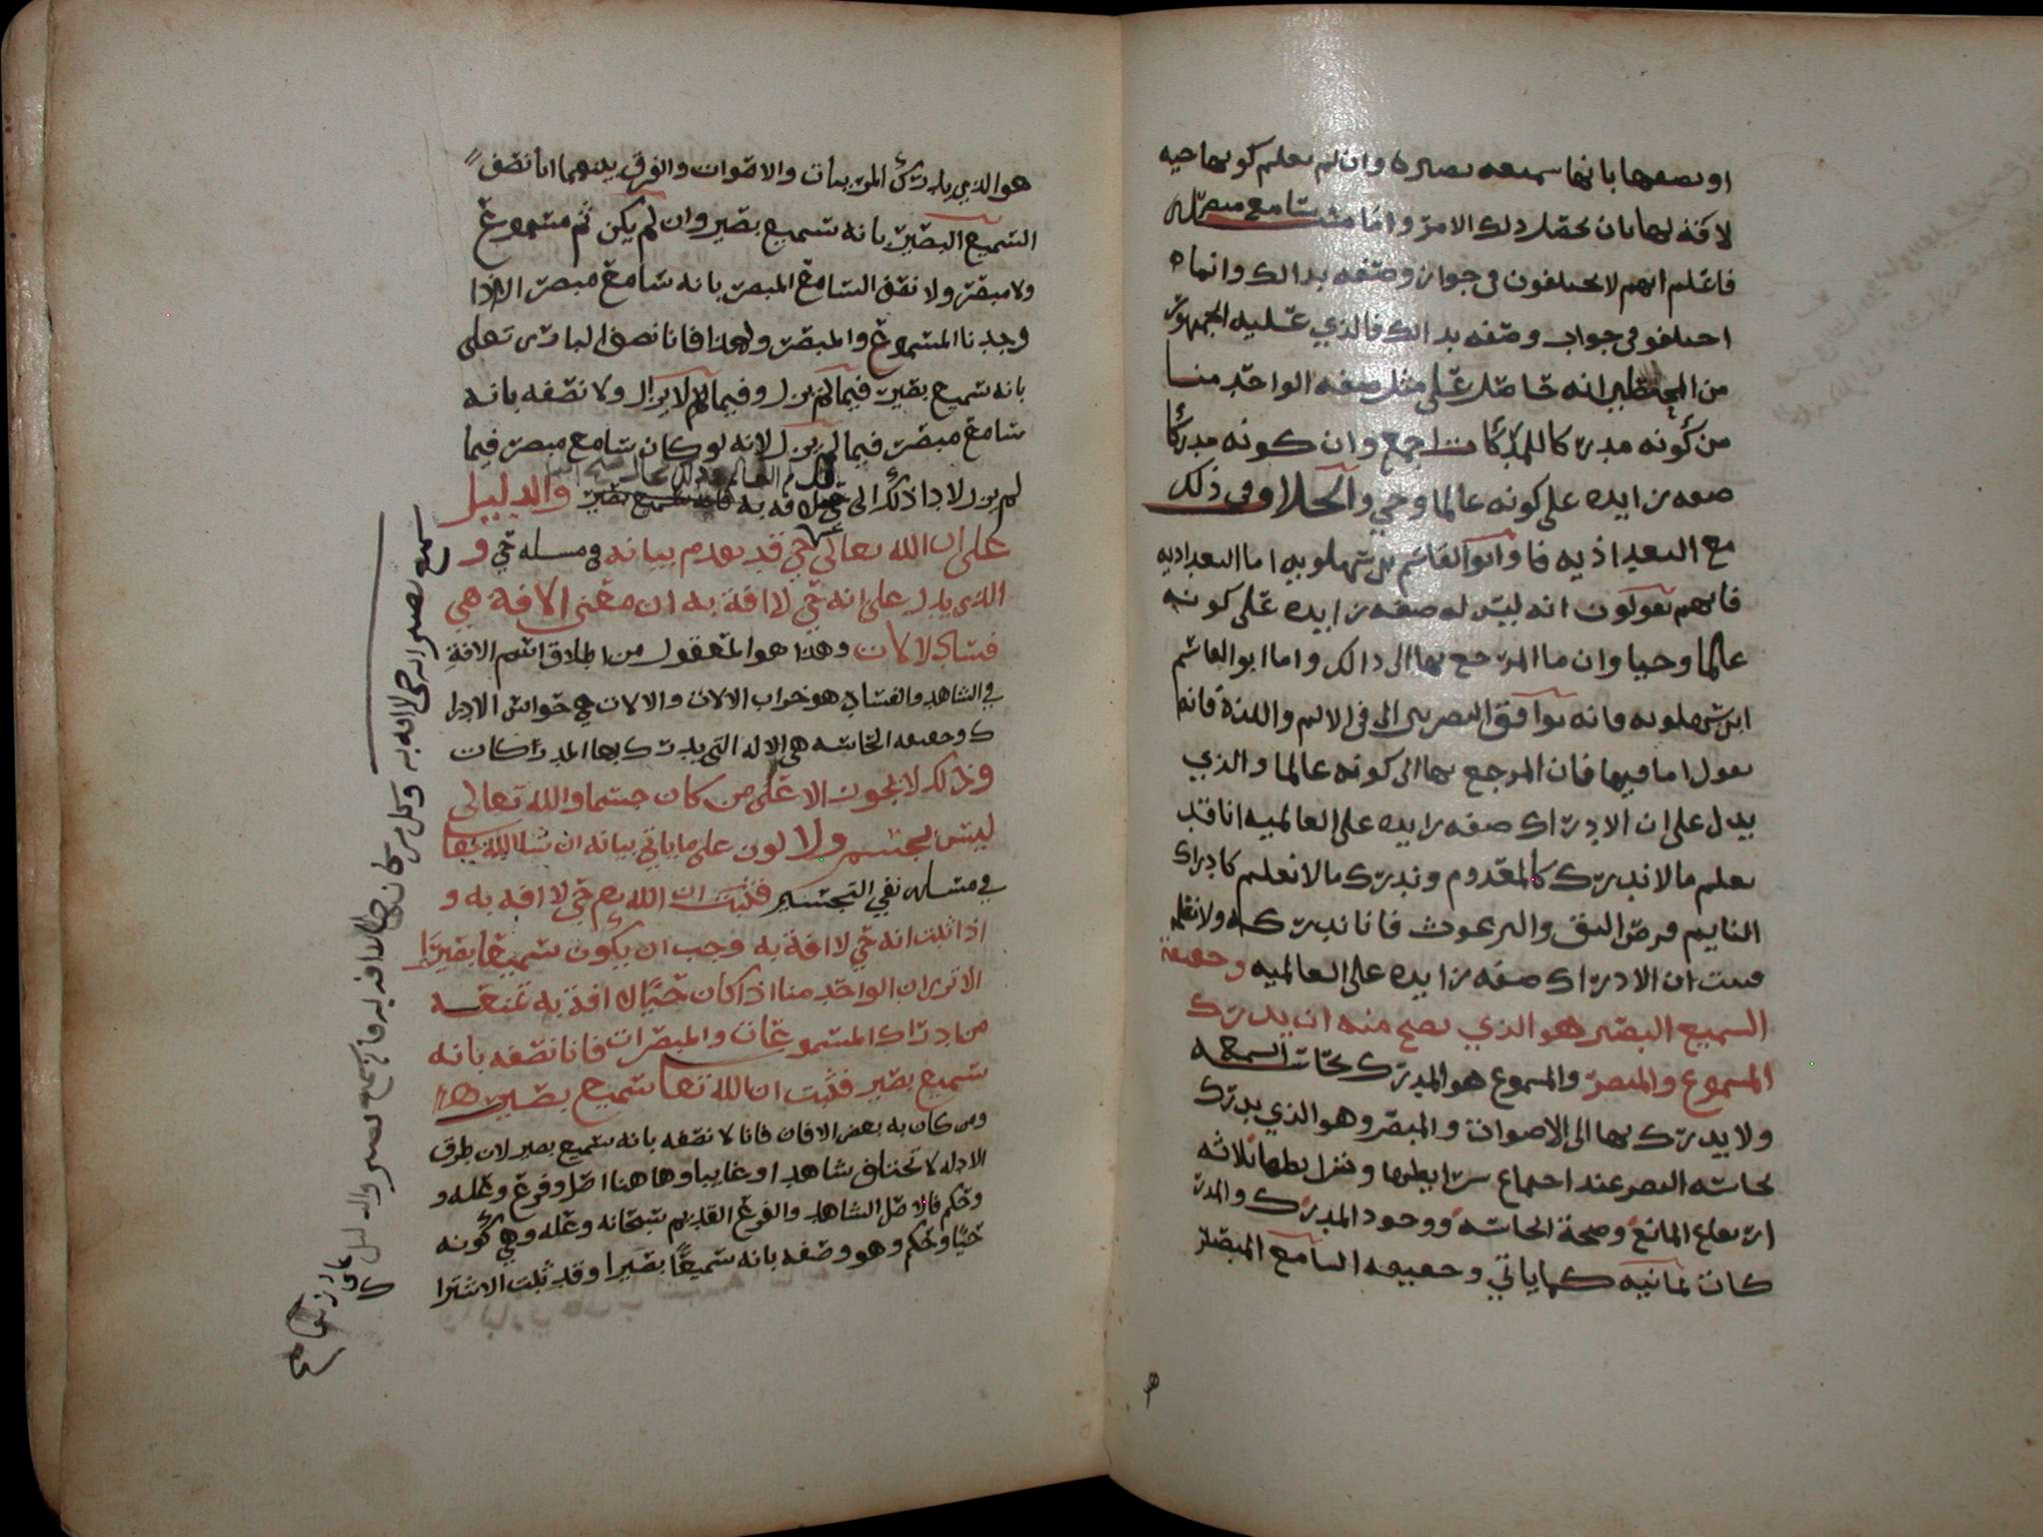 او نصفها بانها سميعه بصيره وان لم نعلم كونها حيه
لا آفة بها بان نحصل ذلك الامر واما سامع مبصر
فاعلم انهم لا يختلفون في جواز وصفه بذالك وانما
اختلفو في جواب وصفه بذالك فالذي عليه الجمهور
من انه حاصل على مثل صفه الواحد منا
من كونه مدركا للمدركات اجمع وان كونه مدركا
صفه زايده على كونه عالما وحي والخلاف في ذلك
مع البغداذيه وابو القاسم بن شهلويه اما البغداديه
فانهم يقولون انه ليس له صفه زايده على كونه
عالما وحيا وان ما المرجع بها الى ذالك واما ابو القاسم
ابن شهلويه فانه يوافق البصريين الى في الالم واللذة فانه
يقول اما فيها فان المرجع بها الى كونه عالما والذي
يدل على ان الادراك صفه زايده على العالميه انا قد
نعلم ما لا ندرك كالمعدوم وندرك ما لا نعلم كادراك
النايم قرص البق والبرغوث فانا ندركه ولا نعلم
فثبت ان الادراك صفه زايده على العالميه وحقيقة
السميع البصير هو الذي يصح منه ان يدرك
المسموع والمبصر والمسموع هو المدرك بحاسة السمع
ولا يدرك بها الى الاصوات والمبصر وهو الذي يدرك
بحاسه البصر عند اجتماع شرايطها وشرايطها ثلاثه
ارتفاع المانع وصحة الحاسه ووجود المدرك والمدر
كات ثمانيه كما ياتي وحقيقه السامع المبصر
هو
هو الذي يدرك المريبات والاصوات والفرق بينهما انا نصف
السميع البصير بانه سميع بصير وان لم يكن ثم مسموع
ولا مبصر ولا نصف السامع المبصر بانه سامع مبصر الا اذا
وجدنا المسموع والمبصر ولهذا فانا نصف البارى تعلى
بانه سميع بصير فيما لم يزل وفيما لا يزال ولا نصفه بانه
سامع مبصر فيما لم يزل لانه لو كان سامع مبصر فيما
لم يزل لادا ذلك الى والدليل
على ان الله تعالى حي قد تقدم بيانه في مسله حي و
الذي يدل على انه حي لا افة به ان معنى الافة هي
فساد الالات وهذا هو المعقول من اطلاق اسم الافة
في الشاهد والفساد هو خراب الالات والالات هي حواس الادرا
ك وحقيقه الحاسه هي الاله التي يدرك بها المدركات
وذلك لا يجوز الا على من كان جسما والله تعالى
ليس بجسم ولا لون على ما ياتي بيانه ان شا الله تعا
في مسله نفي التجسيم فثبت ان الله حي لا افه به و
اذا ثبت انه حي لا افة به وجب ان يكون سميعا بصيرا
الا ترى ان الواحد منا اذا كان حيا لا افة به تمنعه
من ادراك المسموعات والمبصرات فانا نصفه بانه
سميع بصير فثبت ان الله تعا سميع بصير
ومن كان به بعض الافات فانا لا نصفه بانه سميع بصير لان طرق
الادله لا تختلف شاهدا وغايبا وها هنا اصل وفرع وعله و
وحكم فالاصل الشاهد والفرع القديم سبحانه وعله وهي كونه
حيا وحكم وهو وصفه بانه سميعا بصيرا وقد ثبت الاشترا
سميع بصير انه حي لا افه به وكل من كان حيا لا افه به فانه سميع بصير والدليل على